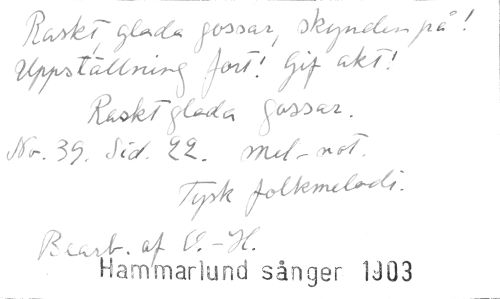 Raskt, glada gossar, skynden på!
Uppställning fort! Gif akt!
Raskt glada gossar.
No. 39. Sid. 22. mel-not.
Tysk folkmelodi.
Bearb. af O.-H.
Hammarlund sånger 1903